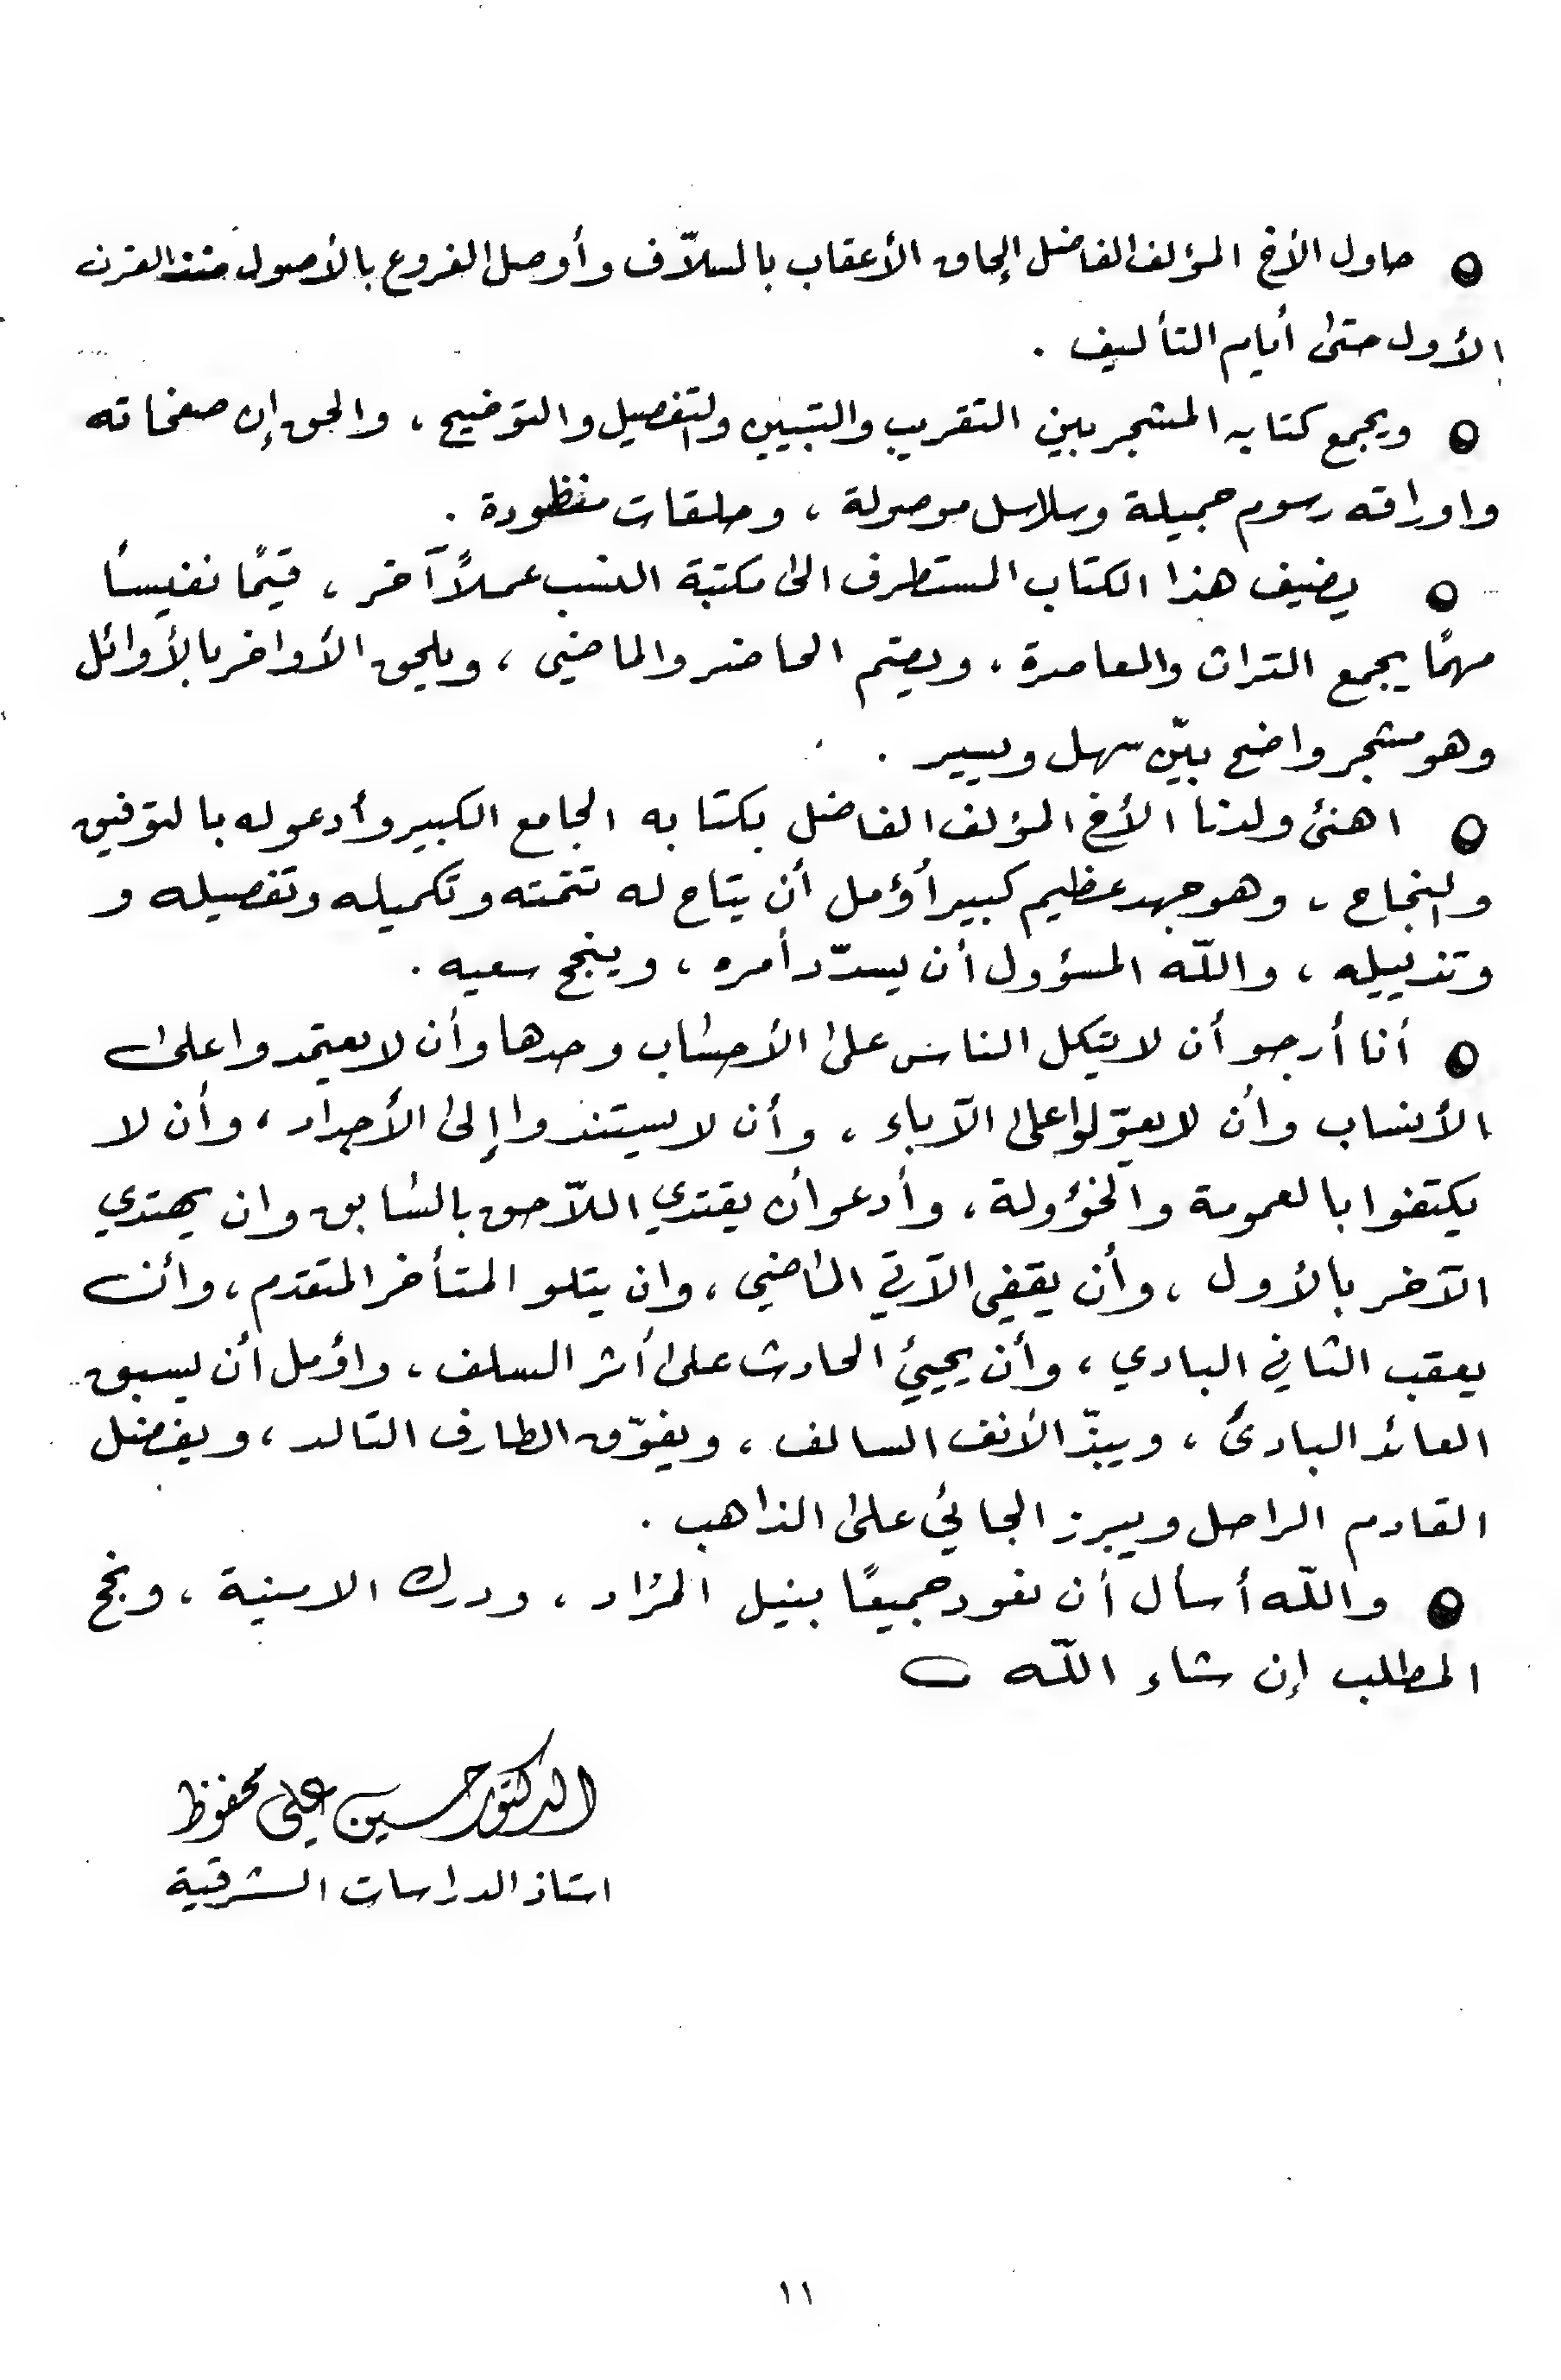 ● حاول الأخ المؤلف الفاضل إلحاق الأعقاب بالسلاّف وأوصل الفروع بالأصول منذ القرن
الأول حتى أيام التأليف .
● ويجمع كتابه المشجر بين التقريب والتبيين والتفصيل والتوضيح ، والحق إن صفحاته
واوراقه رسوم جميلة وسلاسل موصولة ، وحلقات منظودة .
● يضيف هذا الكتاب المستطرف الى مكتبة النسب عملاً آخر ، قيّمًا نفيسًا
مهمًا يجمع التراث والمعاصرة ، ويضم الحاضر والماضي ، ويلحق الأواخر بالأوائل
وهو مشجر واضح بيّن سهل ويسير .
● اهنئ ولدنا الأخ المؤلف الفاضل بكتابه الجامع الكبير وأدعو له بالتوفيق
والنجاح ، وهو جهد عظيم كبير أؤمل أن يتاح له تتمته وتكميله وتفصيله و
وتذييله ، والله المسؤول أن يسدّد أمره ، وينجح سعيه .
● أنا أرجو أن لا يتكل الناس على الأحساب وحدها وأن لا يعتمدوا على
الأنساب وأن لا يعوّلوا على الآباء ، وأن لا يستندوا إلى الأجداد ، وأن لا
يكتفوا بالعمومة والخؤولة ، وأدعو أن يقتدي اللاّحق بالسابق وان يهتدي
الآخر بالأول ، وأن يقفي الآتي الماضي ، وان يتلو المتأخر المتقدم ، وأن
يعقب الثاني البادي ، وأن يجيئ الحادث على أثر السلف ، واؤمل أن يسبق
العائد البادئ ، ويبذّ الأنف السالف ، ويفوّق الطارف التالد ، ويفضل
القادم الراحل ويبرز الجائي على الذاهب .
● والله أسأل أن نعود جميعًا بنيل المراد ، ودرك الامنية ، ونجح
المطلب إن شاء الله
الدكتور حسين علي محفوظ
استاذ الدراسات الشرقية
١١